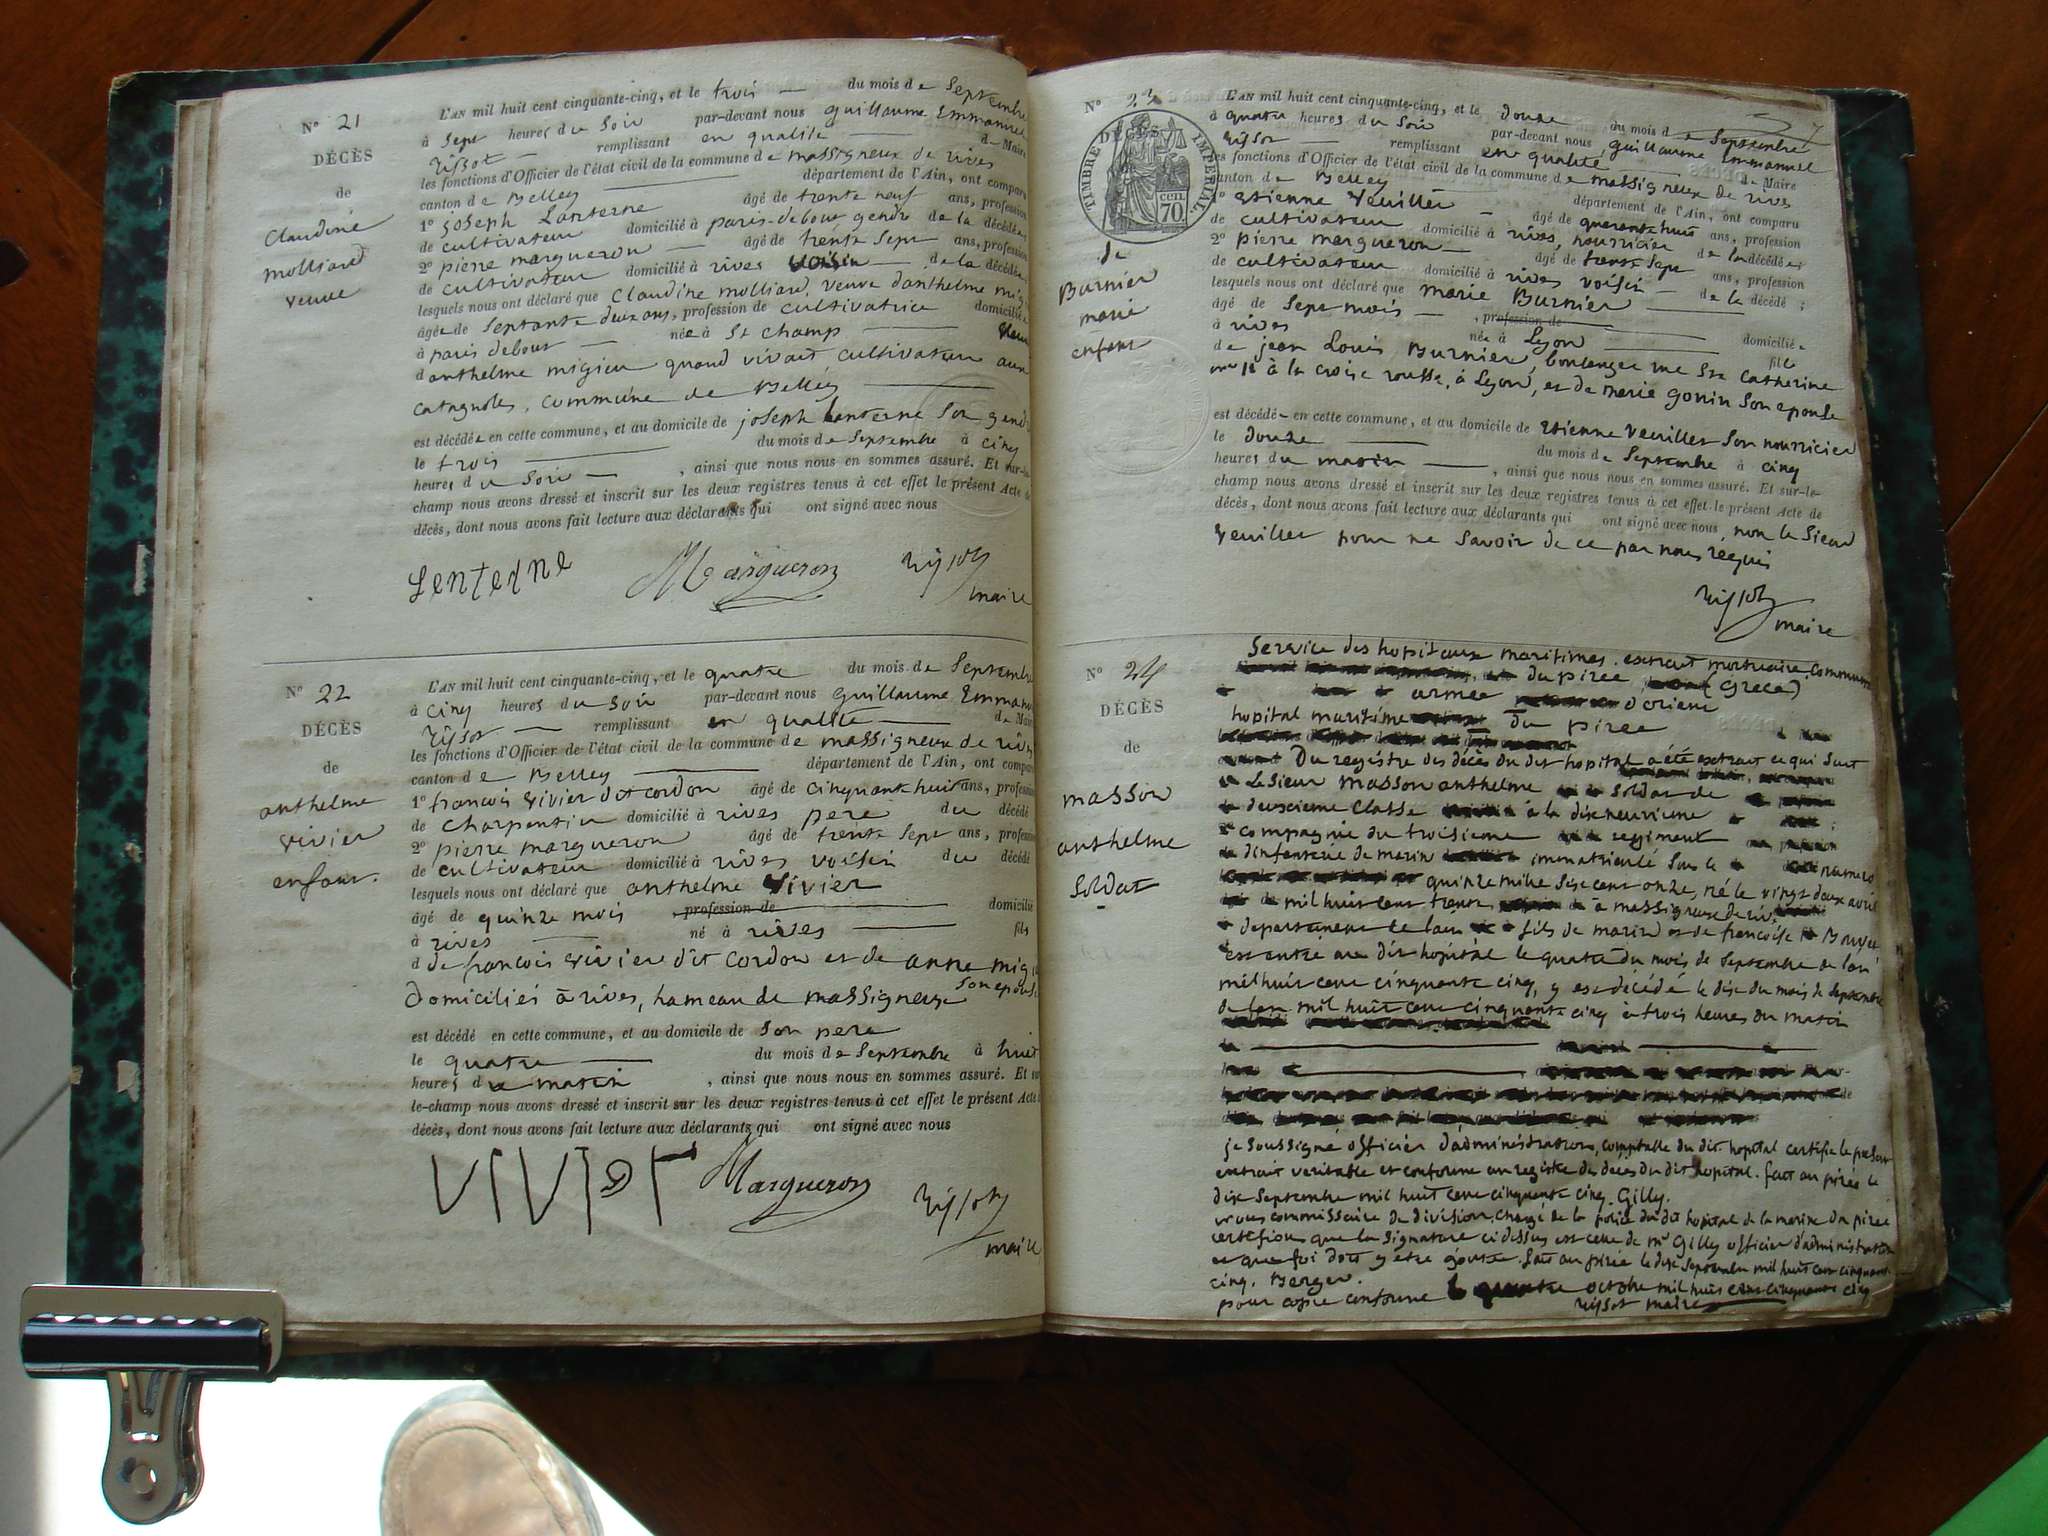 N° 21
DÉCÈS
de
Claudine
molliard
veuve
L'AN mil huit cent cinquante-cinq, et le trois du mois de Septembre
à Sept heures du Soir par-devant nous guillaume Emmanuel
Tissot remplissant en qualité de Maire
les fonctions d'Officier de l'état civil de la commune de massigneux de rives
canton de Belley département de l'Ain, ont comparu
1° joseph Lanterne âgé de trente neuf ans, profession
de cultivateur domicilié à paris-debout gendre de la décédée
2° pierre margueron âgé de trente Sept ans, profession
de cultivateur domicilié à rives voisin de la décédée
lesquels nous ont déclaré que Claudine molliard, veuve d'anthelme
âgée de Septante deux ans, profession de cultivatrice domiciliée
à paris debout née à St champ
d'anthelme migieu quand vivait cultivateur aux
catagnoles, commune de Belley
est décédée en cette commune, et au domicile de joseph Lanterne Son gendre
le trois du mois de Septembre à cinq
heures du Soir , ainsi que nous nous en sommes assuré. Et sur-le-
champ nous avons dressé et inscrit sur les deux registres tenus à cet effet le présent Acte de
décès, dont nous avons fait lecture aux déclarants qui ont signé avec nous
Lenterne Margueron Tissot
maire
N° 22
DÉCÈS
de
anthelme
vivier
enfant.
L'AN mil huit cent cinquante-cinq, et le quatre du mois de Septembre
à cinq heures du Soir par-devant nous guillaume Emmanuel
Tissot remplissant en qualité de Maire
les fonctions d'Officier de l'état civil de la commune de massigneux de rives
canton de Belley département de l'Ain, ont comparu
1° francois vivier dit cordon âgé de cinquante huit ans, profession
de charpentier domicilié à rives pere du décédé
2° pierre margueron âgé de trente Sept ans, profession
de cultivateur domicilié à rives voisin du décédé
lesquels nous ont déclaré que anthelme vivier
âgé de quinze mois profession de domicilié
à rives né à rives fils
d de francois vivier dit cordon et de anne
Son epouse
Domiciliés à rives, hameau de massigneux
est décédé en cette commune, et au domicile de Son pere
le quatre du mois de Septembre à huit
heures du matin , ainsi que nous nous en sommes assuré. Et sur-
le-champ nous avons dressé et inscrit sur les deux registres tenus à cet effet le présent Acte
décès, dont nous avons fait lecture aux déclarants qui ont signé avec nous
Margueron Tissot
maire
N° 23
TIMBRE IMPERIAL
70 cen.
de
Burnier
marie
enfant
L'AN mil huit cent cinquante-cinq, et le douze du mois de Septembre
à quatre heures du Soir par-devant nous guillaume Emmanuel
Tissot remplissant en qualité de Maire
les fonctions d'Officier de l'état civil de la commune de massigneux de rives
canton de Belley département de l'Ain, ont comparu
1° Etienne Veuillet âgé de quarante huit ans, profession
de cultivateur domicilié à rives, nourricier de la décédée;
2° pierre margueron âgé de trente Sept ans, profession
de cultivateur domicilié à rives voisin de la décédé;
lesquels nous ont déclaré que Marie Burnier
âgé de Sept mois , profession de
à rives née à Lyon domiciliée
de jean Louis Burnier, boulanger rue Ste Catherine fille
à la croix rousse, à Lyon, et de marie gonin Son epouse
est décédée en cette commune, et au domicile de Etienne Veuillet Son nourricier
le douze du mois de Septembre à cinq
heures du matin , ainsi que nous nous en sommes assuré. Et sur-le-
champ nous avons dressé et inscrit sur les deux registres tenus à cet effet le présent Acte de
décès, dont nous avons fait lecture aux déclarants qui ont signé avec nous, non le Sieur
Veuillet pour ne Savoir de ce par nous requis
Tissot
maire
N° 24
DÉCÈS
de
masson
anthelme
Soldat
Service des hopitaux maritimes. extrait mortuaire, Commune
du piree (Grece)
armée d'orient
hopital maritime Du piree
Du registre des décès du dit hopital a été extrait ce qui Suit
Le Sieur masson anthelme Soldat de
deuxieme Classe à la dixneuvieme
compagnie du troisieme regiment
d'infanterie de marin immatriculé Sous le numero
quinze mille Six cent onze, né le vingt deux avril
mil huit cent trente à massigneux de rives
departement de lain fils de marin et de francoise
est entré au dit hopital le quatre du mois de Septembre de lan
mil huit cent cinquante cinq, y est décédé le dix du mois de Septembre
de lan mil huit cent cinquante cinq à trois heures du matin
je Soussigné officier d'administration, comptable du dit hopital certifie le present
extrait veritable et conforme au registre des deces du dit hopital. fait au pirée le
dix Septembre mil huit cent cinquante cinq. Gilly.
nous commissaire de division, chargé de la police du dit hopital de la marine du piree
certifions que la Signature ci dessus est celle de mr Gilly officier d'administration
et que foi doit y etre ajoutée. fait au pirée le dix Septembre mil huit cent cinquante
cinq. Berger.
pour copie conforme le quatre octobre mil huit cent cinquante cinq
Tissot maire